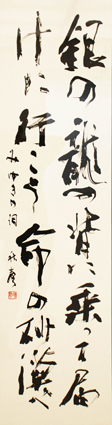 銀の龍の背に乗って届
けに行こう命の砂漠へ
みゆきの詞